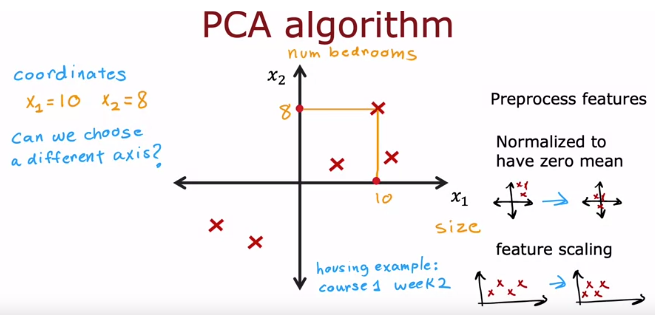 PCA algorithm
num bedrooms
x₂
coordinates
x₁=10 x₂=8
can we choose
a different axis?
8
10
x₁
size
housing example:
course 1 week2
Preprocess features
Normalized to
have zero mean
feature scaling